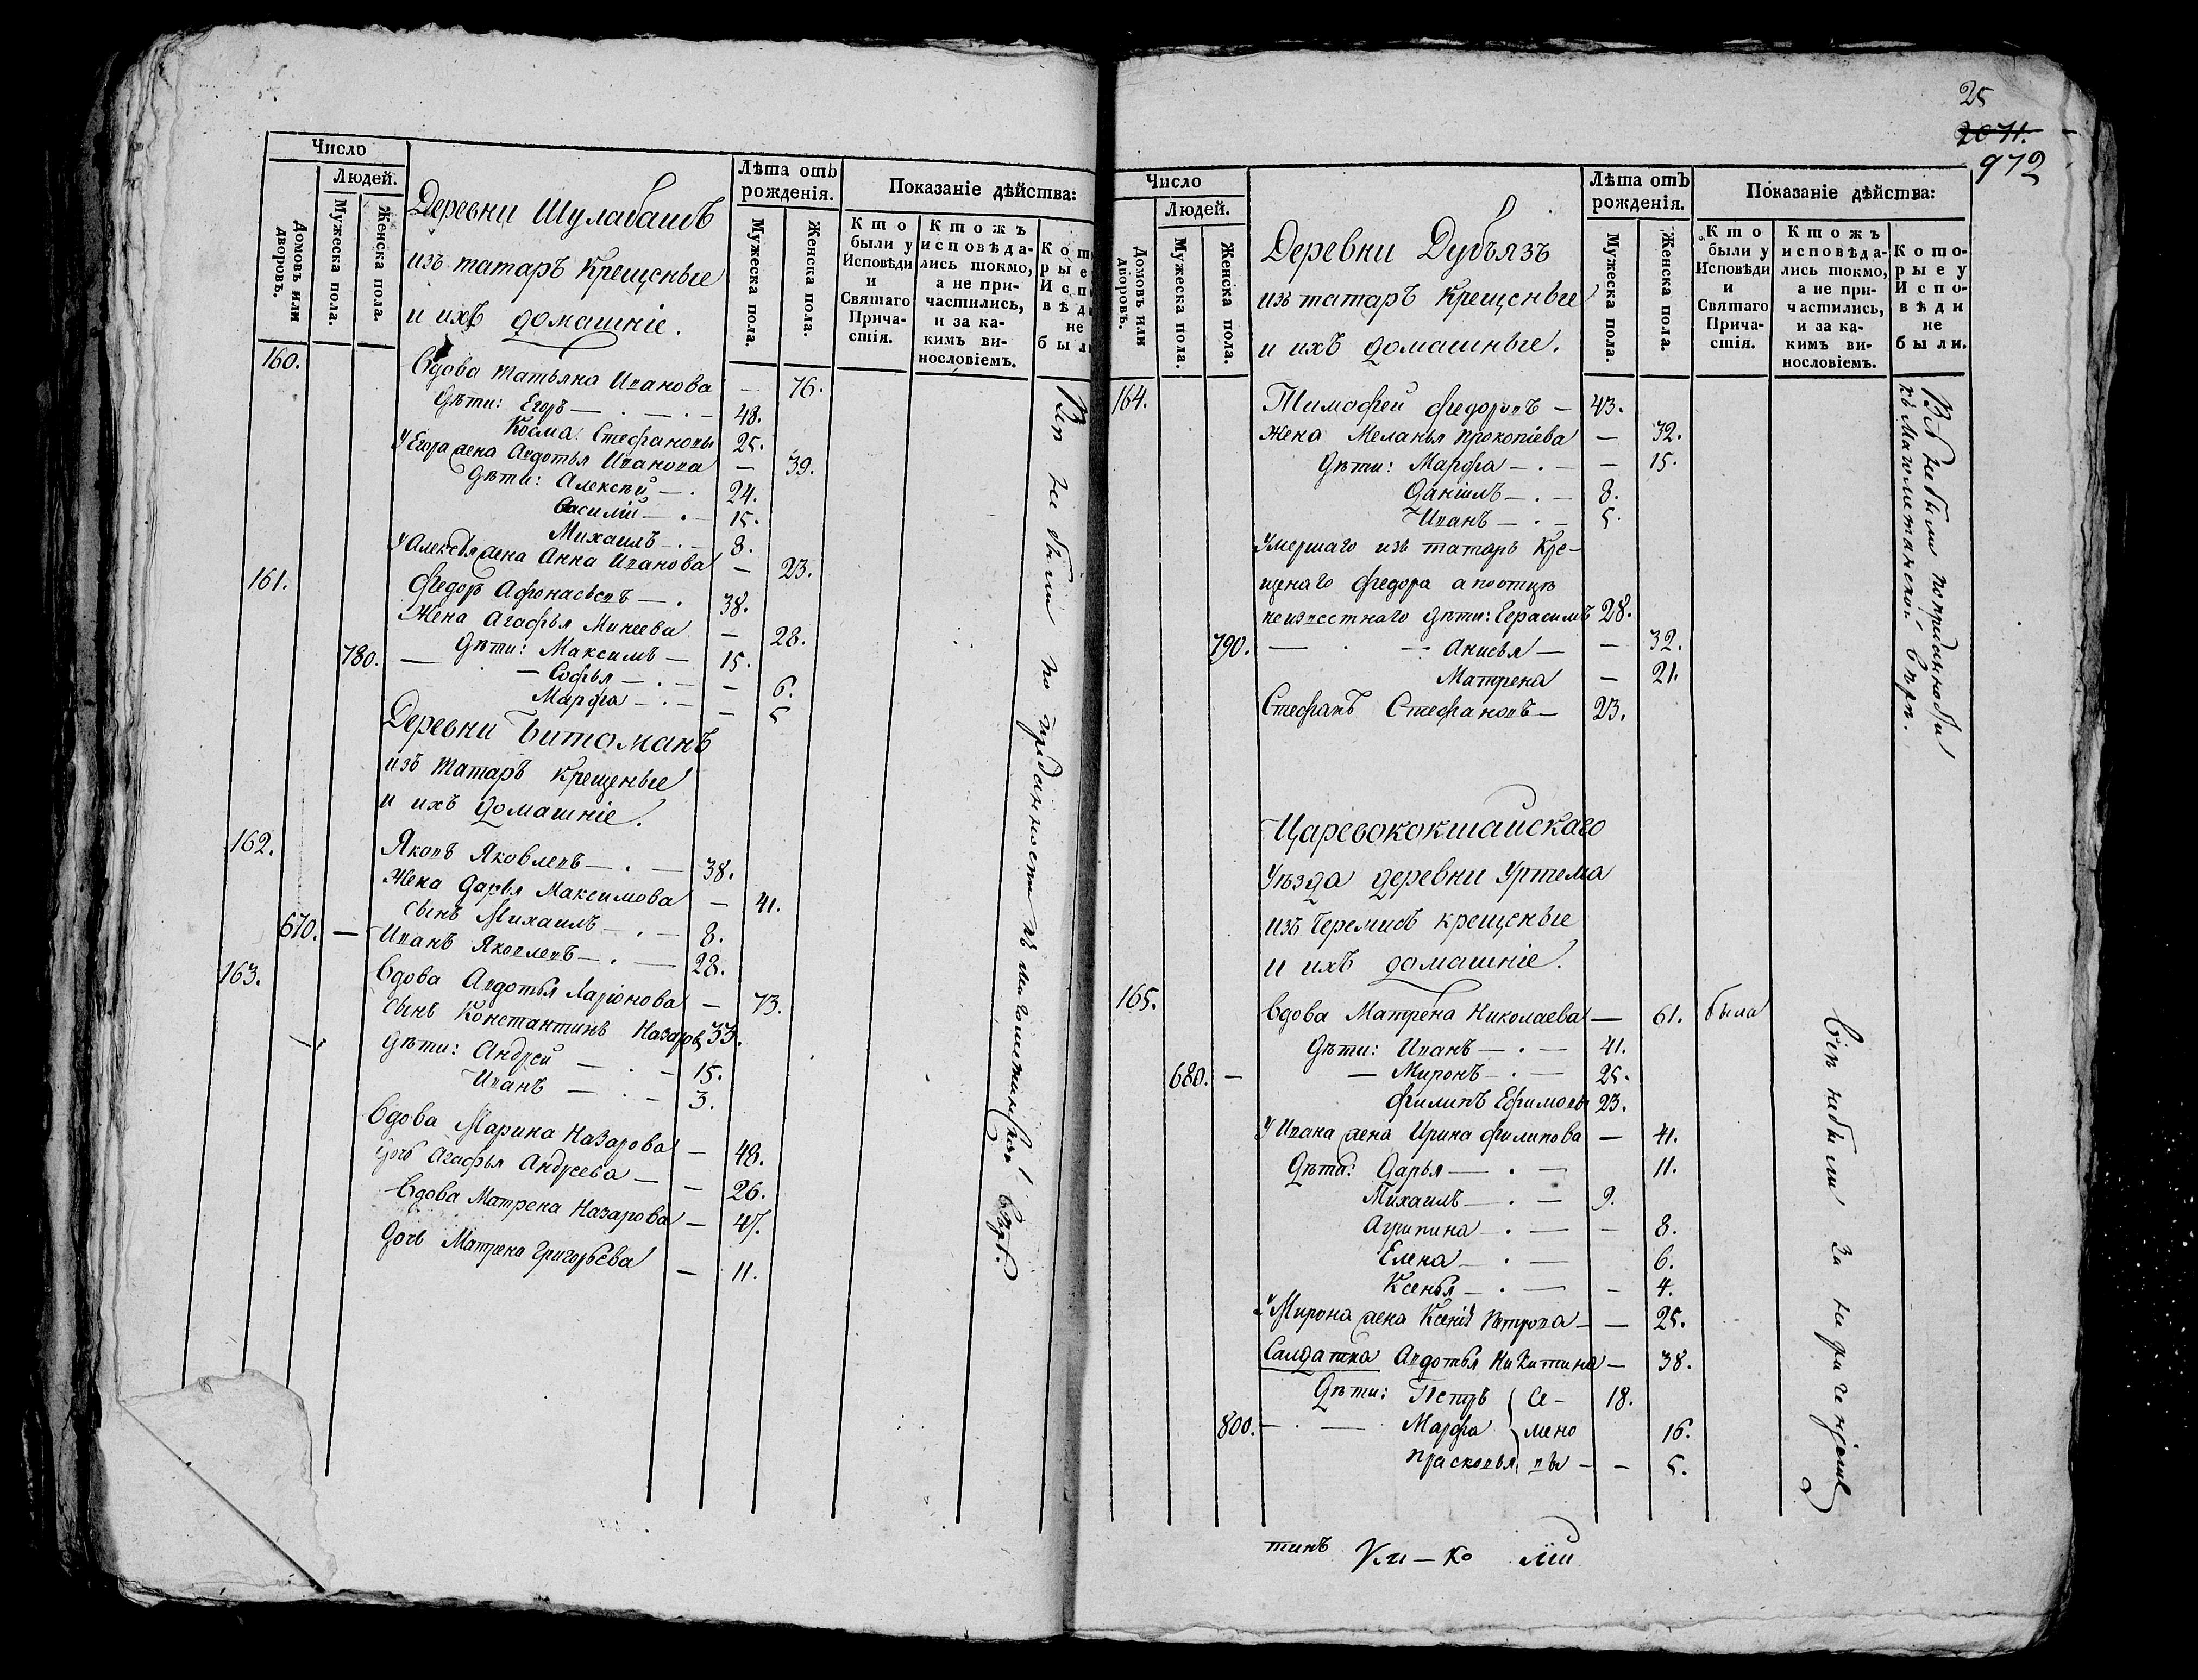 Число
Людей.
Домовъ или дворовъ.
Мужеска пола.
Женска пола.
Деревни Шулабашъ
изъ татаръ крещеные
и ихъ домашніе.
Лѣта отъ
рожденія.
Мужеска пола.
Женска пола.
Показаніе дѣйства:
Кто
были у
Исповѣди
и
Святаго
Прича-
стія.
Ктожъ
исповѣда-
лись токмо,
а не при-
частились,
и за ка-
кимъ ви-
нословіемъ.
Кот
рые
Исп
вѣд
не
был
160. Вдова Татьяна Иванова — 76.
Дѣти: Егоръ — 48.
Косма Стефановы 25.
У Егора жена Авдотья Иванова — 39.
Дѣти: Алексѣй — 24.
Василій — 15.
Михаилъ — 8.
У Алексѣя жена Анна Иванова — 23.
161. Федоръ Афонасьевъ — 38.
Жена Агафья Минеева — 28.
Дѣти: Максимъ — 15.
780. — Софья — 6.
Марфа — 5
Деревни Битаманъ
изъ татаръ крещеные
и ихъ домашніе.
162. Яковъ Яковлевъ — 38.
Жена Дарья Максимова — 41.
сынъ Михаилъ — 8.
670. — Иванъ Яковлевъ — 28.
163. Вдова Авдотья Ларіонова — 73.
сынъ Константинъ Назаровъ 33.
Дѣти: Андрей — 15.
Иванъ — 3.
Вдова Марина Назарова — 48.
дочь Агафья Андреева — 26.
Вдова Матрена Назарова — 47.
дочь Матрена Григорьева — 11.
Всѣ не были по преданности къ магометанской вѣрѣ.
25
2071.
972
Число
Людей.
Домовъ или дворовъ.
Мужеска пола.
Женска пола.
Деревни Дубъязъ
изъ татаръ крещеные
и ихъ домашные.
Лѣта отъ
рожденія.
Мужеска пола.
Женска пола.
Показаніе дѣйства:
Кто
были у
Исповѣди
и
Святаго
Прича-
стія.
Ктожъ
исповѣда-
лись токмо,
а не при-
частились,
и за ка-
кимъ ви-
нословіемъ.
Кото-
рые у
Испо-
вѣди
не
были.
164. Тимофей Федоровъ — 43.
Жена Меланья Прокопіева — 32.
Дѣти: Марфа — 15.
Даніилъ — 8.
Иванъ — 5.
Умершаго изъ татаръ кре-
щенаго Федора а по отцѣ
неизвестнаго дѣти: Герасимъ 28.
790. — Анисья — 32.
Матрена — 21.
Стефанъ Стефановъ — 23.
не были по преданности
къ магометанской вѣрѣ.
Царевококшайскаго
уѣзда деревни Уртема
изъ черемисъ крещеные
и ихъ домашніе.
165. Вдова Матрена Николаева — 61. была
Дѣти: Иванъ — 41.
680. — Миронъ — 25.
Филипъ Ефимовы 23.
У Ивана жена Ирина Филипова — 41.
Дѣти: Дарья — 11.
Михаилъ — 9.
Агрипина — 8.
Елена — 6.
Ксенья — 4.
У Мирона жена Ксенія Петрова — 25.
Салдатка Авдотья Никитина — 38.
Дѣти: Петръ Се- 18.
800. — Марфа мено 16.
Прасковья вы — 5.
Всѣ не были за нераченіемъ
тинъ